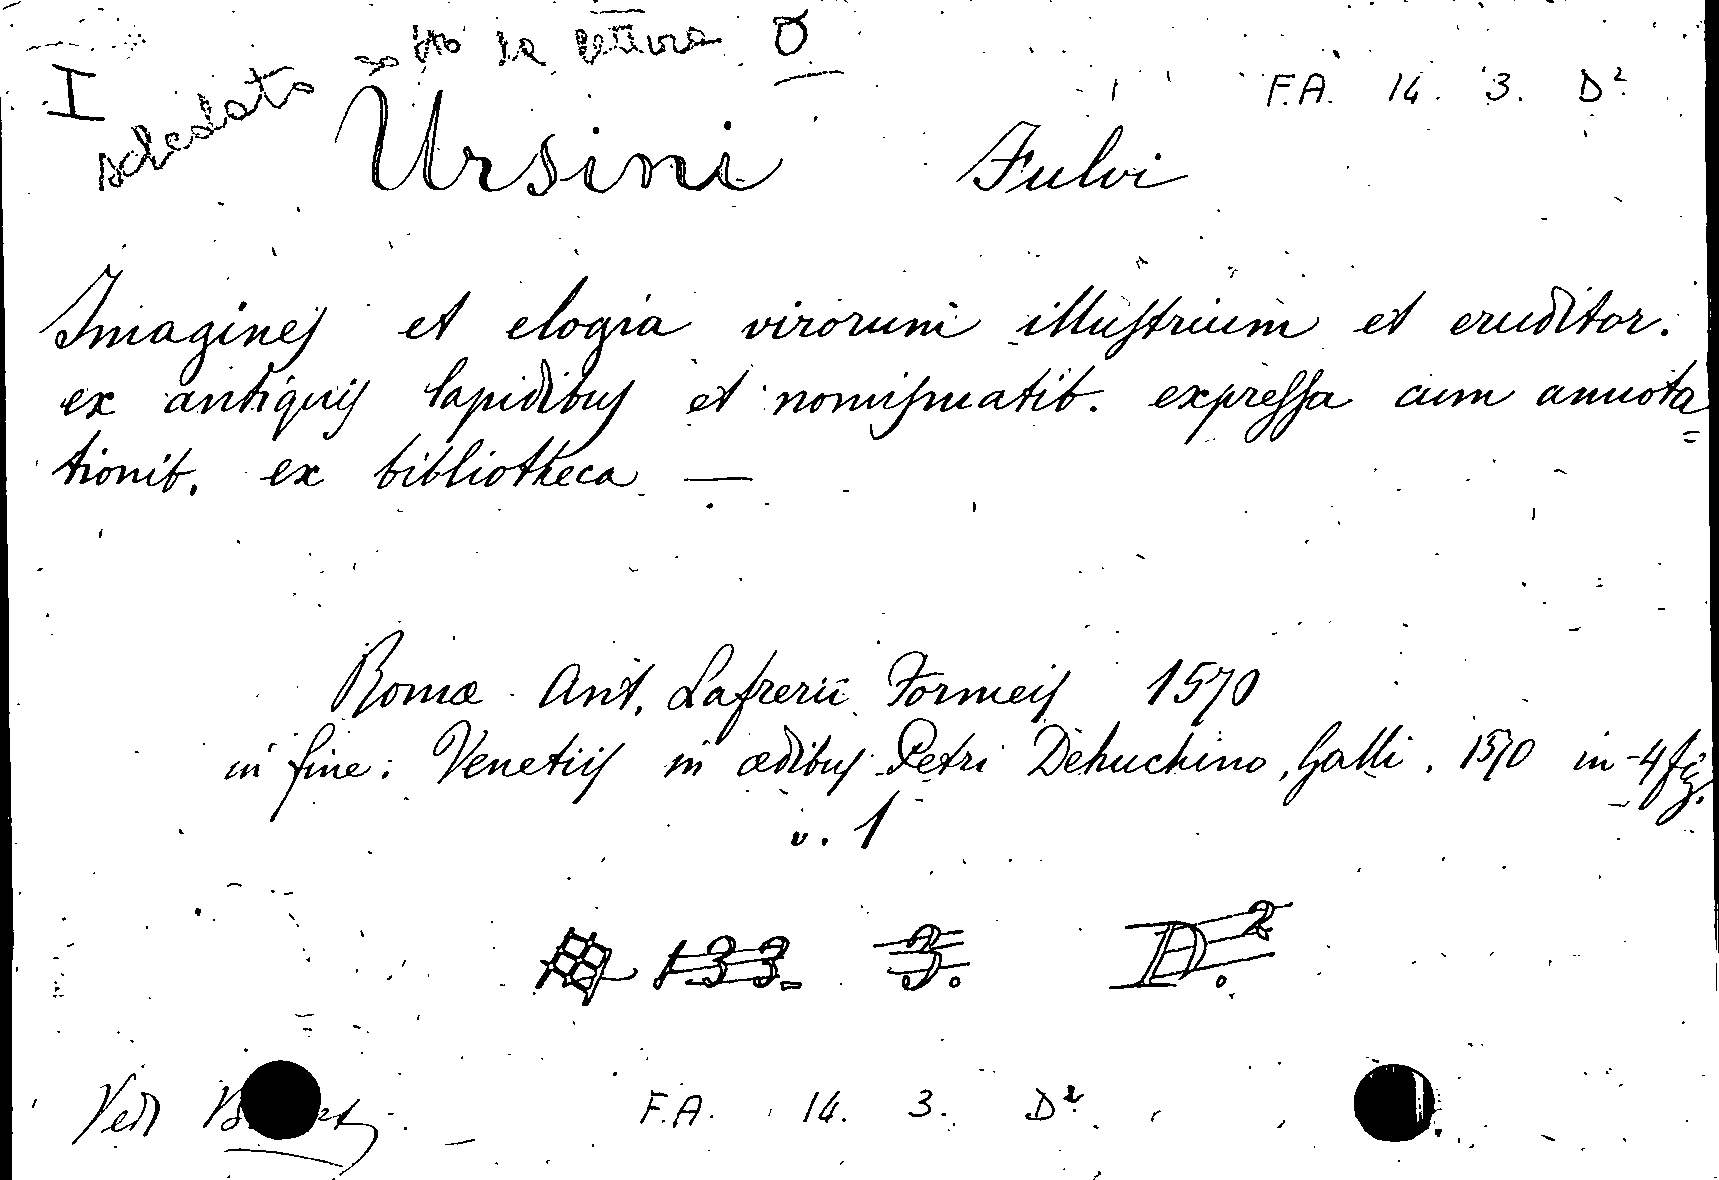 I schedato sotto la lettura O
F.A. 14. 3. D²
Ursini Fulvi
Imagines et elogia virorum illustrium et eruditor.
ex antiquis lapidibus et nomismatib. expressa cum annota=
tionib. ex bibliotheca —
Romæ Ant. Lafrerii Formeis 1570
in fine: Venetiis in ædibus Petri Dehuchino, Galli. 1570 in-4 fig.
v. 1
133. 3. D.²
Vedi
F.A. 14. 3. D²